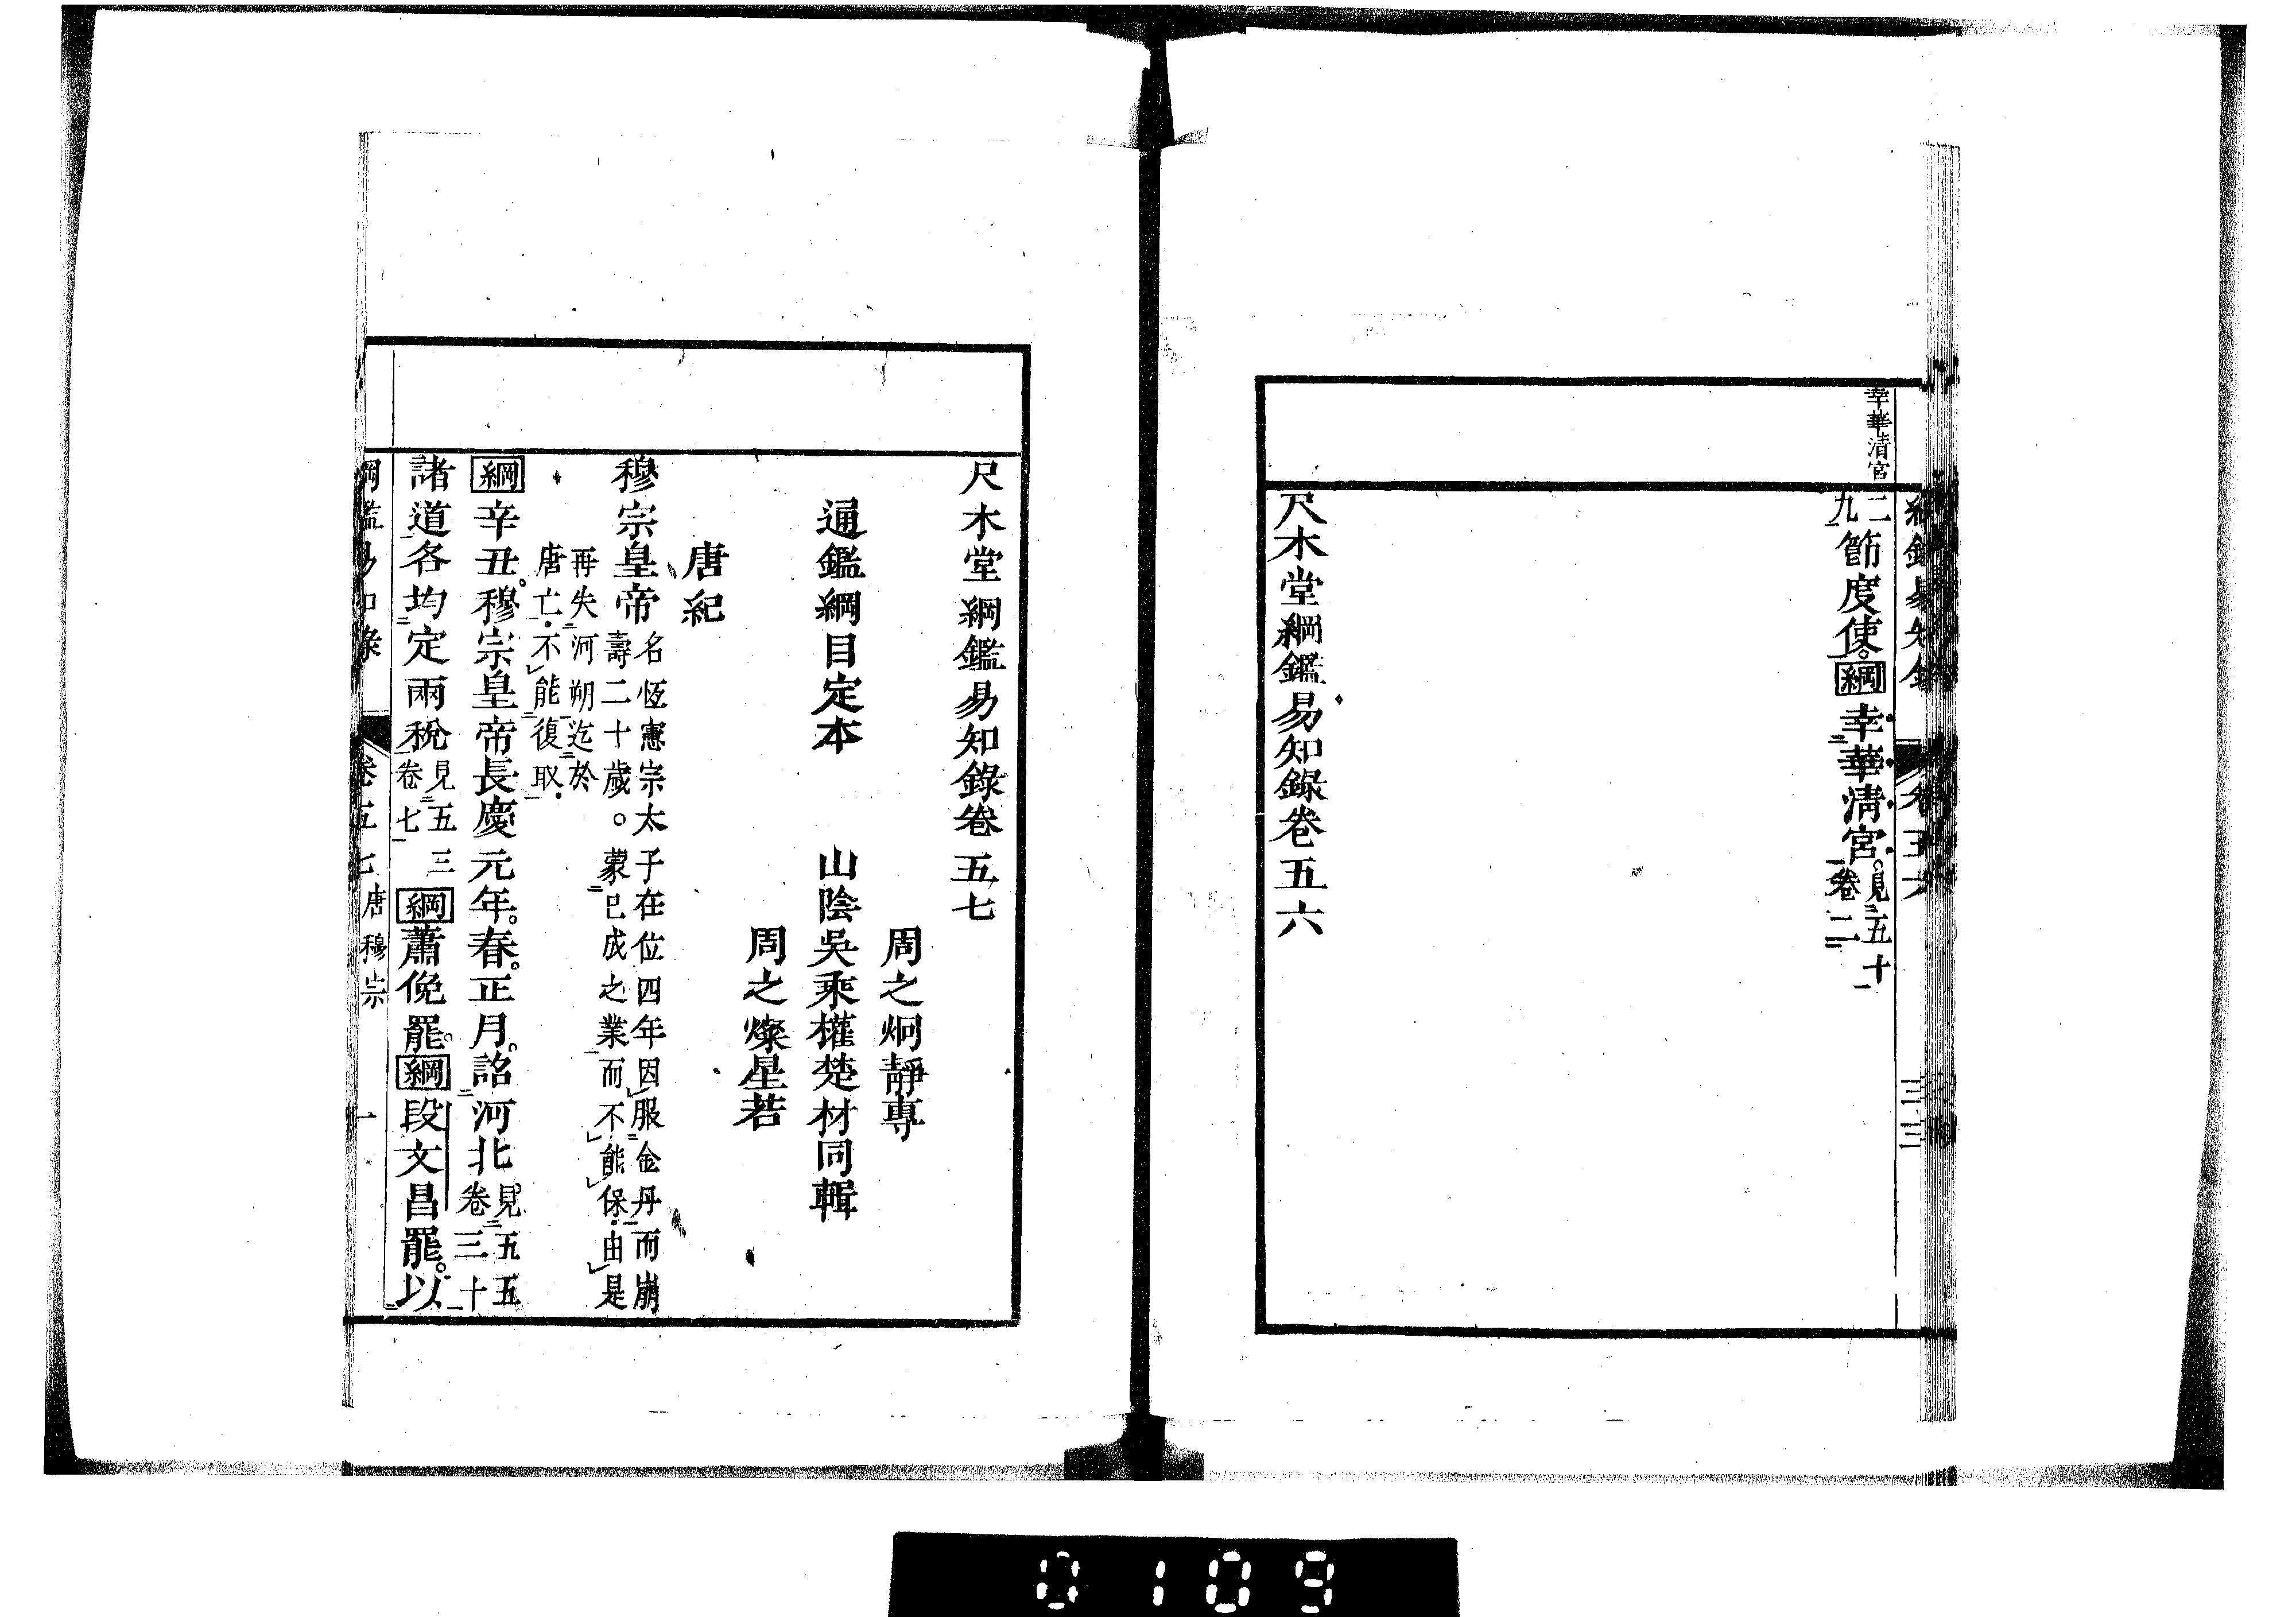 幸華清宮
二九節度使。綱幸華清宮。見五十卷二一
尺木堂綱鑑易知錄卷五六
三三
尺木堂綱鑑易知錄卷五七
周之炯靜專
通鑑綱目定本 山陰吳乘權楚材同輯
周之燦星若
唐紀
穆宗皇帝名恆憲宗太子在位四年因服金丹而崩
壽二十歲。蒙已成之業而不能保由是
再失河朔迄於
唐亡不能復取
綱辛丑。穆宗皇帝長慶元年。春。正月。詔河北見五五卷三十
諸道各均定兩稅見五三卷七綱蕭俛罷。綱段文昌罷。以
綱鑑易知錄 卷五七 唐穆宗 一
0109